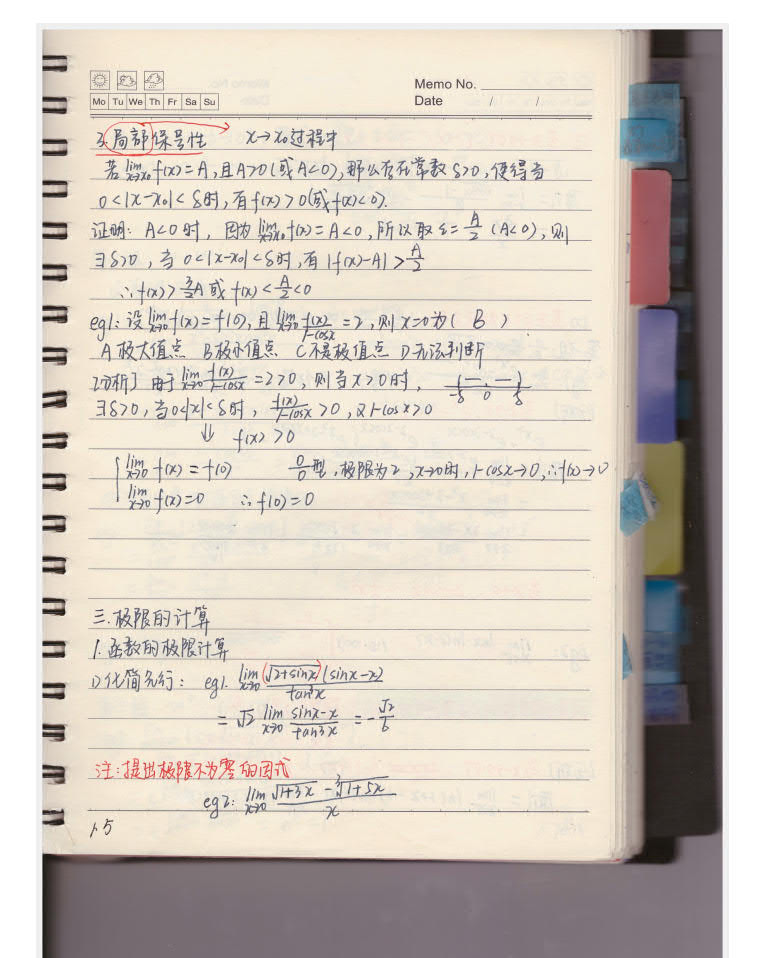 Memo No.
Mo Tu We Th Fr Sa Su
Date / /
3.局部保号性 x→x₀过程中
若lim_{x→x₀}f(x)=A,且A>0(或A<0),那么存在常数δ>0,使得当
0<|x-x₀|<δ时,有f(x)>0(或f(x)<0).
证明: A<0时, 因为lim_{x→x₀}f(x)=A<0,所以取ε=A/2 (A<0),则
∃δ>0, 当0<|x-x₀|<δ时,有|f(x)-A|>A/2
∴f(x)>3/2A或f(x)<A/2<0
eg1:设lim_{x→0}f(x)=f(0),且lim_{x→0}f(x)/(1-cosx)=2,则x=0为( B )
A极大值点 B极小值点 C不是极值点 D无法判断
[分析] 由于lim_{x→0}f(x)/(1-cosx)=2>0, 则当x>0时,
(—, —)
-δ 0 δ
∃δ>0,当0<|x|<δ时, f(x)/(1-cosx)>0,又1-cosx>0
⇓ f(x)>0
{lim_{x→0}f(x)=f(0) 0/0型,极限为2,x→0时,1-cosx→0,∴f(x)→0
lim_{x→0}f(x)=0 ∴f(0)=0
三.极限的计算
1.函数的极限计算
1)化简先行: eg1. lim_{x→0}(√(2+sinx))(sinx-x)/tan³x
=√2 lim_{x→0}(sinx-x)/tan³x =-√2/6
注:提出极限不为零的因式
eg2: lim_{x→0}(√(1+3x)-³√(1+5x))/x